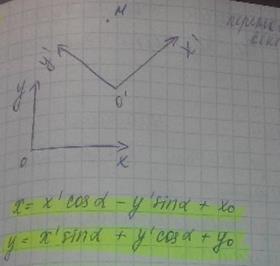 M
y'
x'
y
O'
O
x
x = x' cos α − y' sin α + x₀
y = x' sin α + y' cos α + y₀